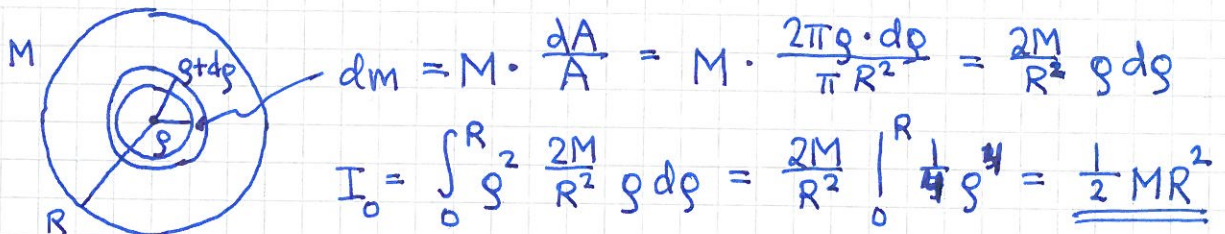 M
ρ+dρ
ρ
R
dm = M · dA/A = M · 2πρ·dρ/πR² = 2M/R² ρ dρ
I₀ = ∫₀ᴿ ρ² 2M/R² ρ dρ = 2M/R² |₀ᴿ 1/4 ρ⁴ = 1/2 MR²